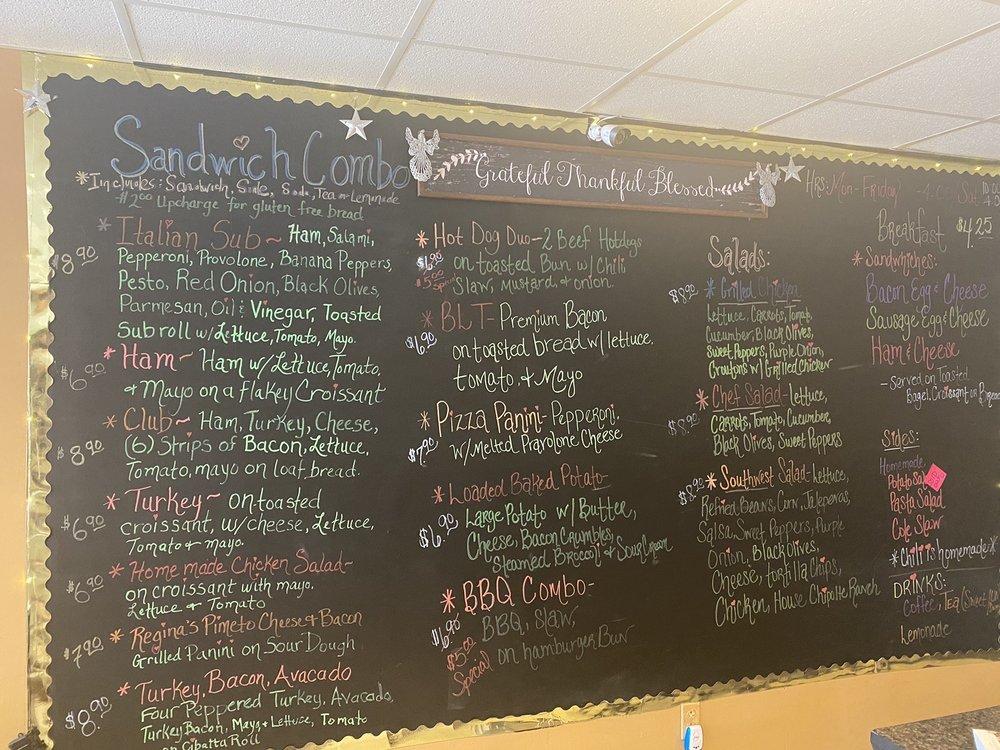 Sandwich Combo
*Includes: Sandwich, Side, Soda, Tea or Lemonade
$2.00 Upcharge for gluten free bread
$8.90
* Italian Sub~ Ham, Salami,
Pepperoni, Provolone, Banana Peppers,
Pesto, Red Onion, Black Olives,
Parmesan, Oil & Vinegar, Toasted
Sub roll w/Lettuce, Tomato, Mayo.
$6.90
* Ham~ Ham w/Lettuce, Tomato,
& Mayo on a flakey Croissant
$8.90
* Club~ Ham, Turkey, Cheese,
(6) Strips of Bacon, Lettuce,
Tomato, mayo on loaf bread.
$6.90
* Turkey~ on toasted
croissant, w/cheese, Lettuce,
Tomato & mayo.
$6.90
* Home made Chicken Salad~
on croissant with mayo,
Lettuce & Tomato
$7.90
* Regina's Pimeto Cheese & Bacon
Grilled Panini on Sour Dough
$8.90
* Turkey, Bacon, Avacado
Four Peppered Turkey, Avacado,
Turkey Bacon, Mayo & Lettuce, Tomato
on Cibatta Roll
Grateful Thankful Blessed
* Hot Dog Duo-2 Beef Hotdogs
$6.90
on toasted Bun w/Chili
$5.00
Slaw, Mustard, & onion.
* BLT- Premium Bacon
$6.90
on toasted bread w/lettuce.
tomato. & Mayo
* Pizza Panini- Pepperoni,
$7.90
w/Melted Pravolone Cheese
* Loaded Baked Potato-
$6.90
Large Potato w/ Butter,
Cheese, Bacon Crumbles,
Steamed Brocolli & Sour Cream
* BBQ Combo-
$6.90
BBQ, Slaw,
$5.00
Special
on hamburger Bun
Salads:
$8.90
* Grilled Chicken
Lettuce, Carrots, Tomato,
Cucumber, Black Olives,
Sweet Peppers, Purple Onion,
Croutons w/ Grilled Chicken
$8.90
* Chef Salad- lettuce,
Carrots, Tomato, Cucumber,
Black Olives, Sweet Peppers
$8.90
* Southwest Salad- Lettuce,
Refried Beans, Corn, Jalepenos,
Salsa, Sweet Peppers, Purple
Onion, Black olives,
Cheese, Tortilla Chips,
Chicken, House Chipotle Ranch
Hrs: Mon-Friday
Sat.
Breakfast $4.25
* Sandwhiches:
Bacon Egg & Cheese
Sausage Egg & Cheese
Ham & Cheese
- Served on Toasted
Bagel, Croissant or
Sides:
Homemade
Potato
Pasta Salad
Cole Slaw
*Chili is homemade*
DRINKS:
Coffee, Tea
Lemonade